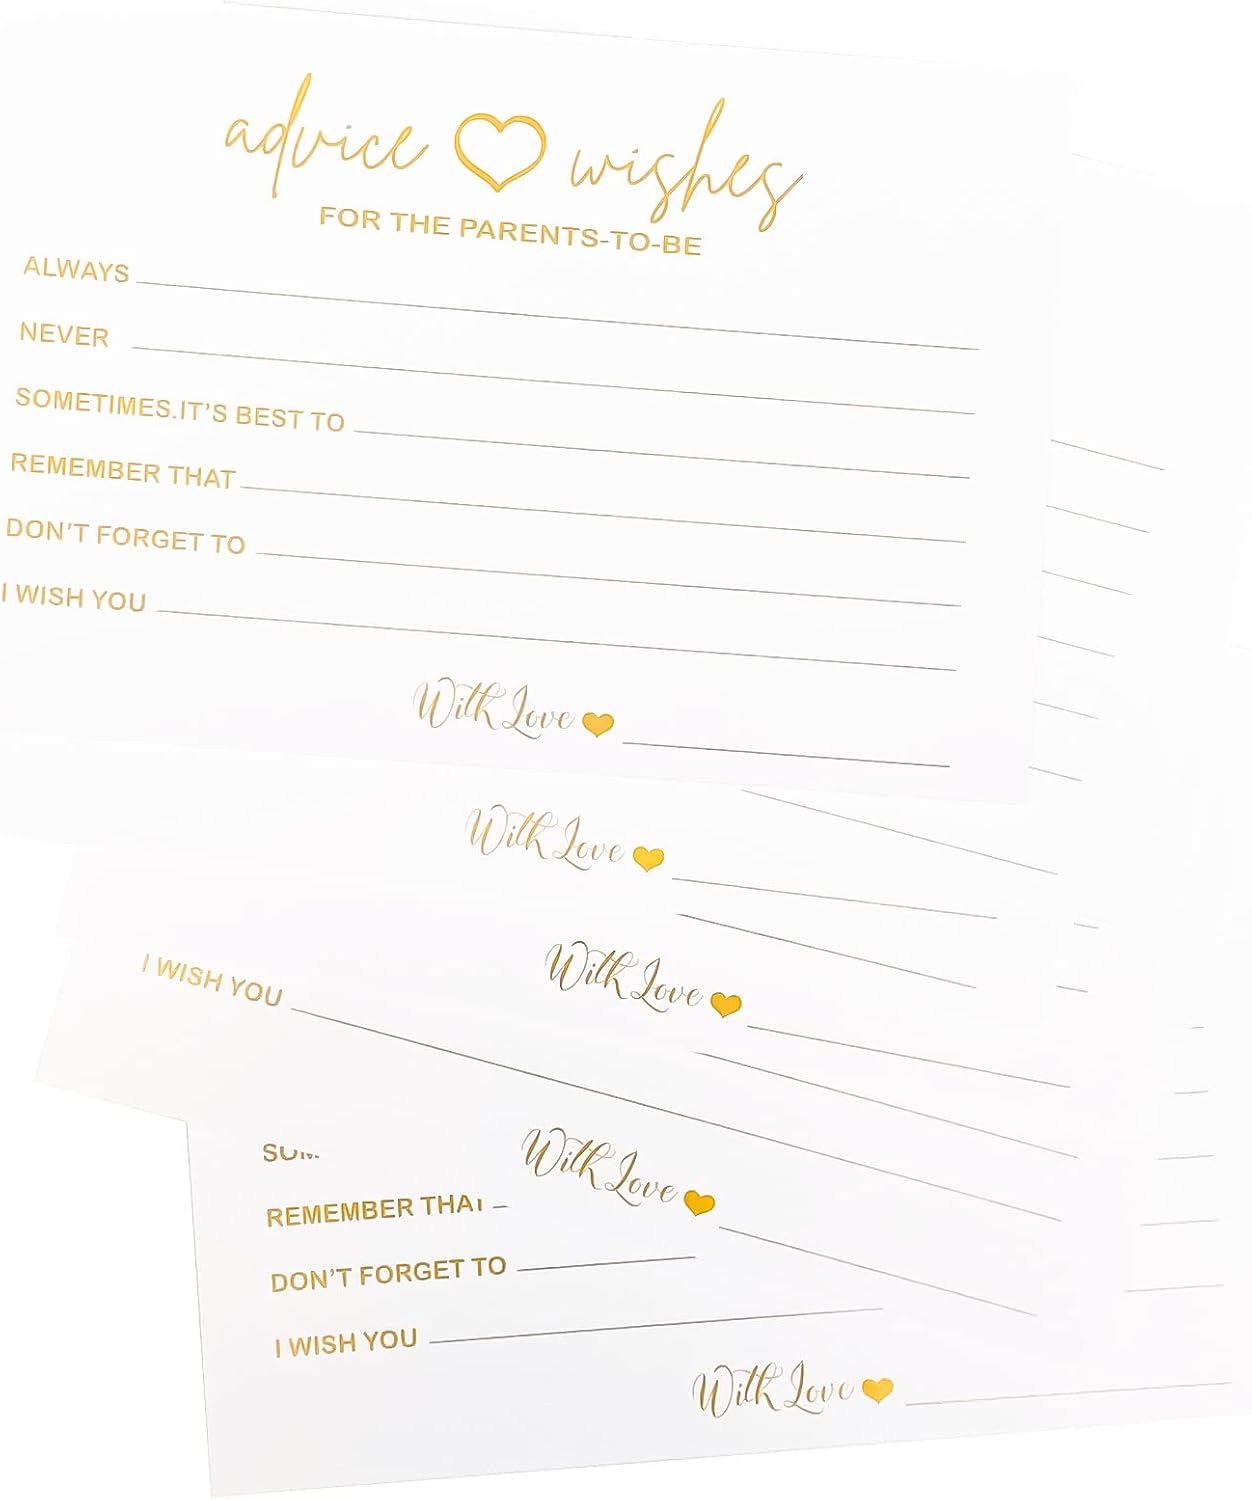 advice wishes
FOR THE PARENTS-TO-BE
ALWAYS
NEVER
SOMETIMES.IT'S BEST TO
REMEMBER THAT
DON'T FORGET TO
I WISH YOU
With Love
With Love
With Love
I WISH YOU
With Love
REMEMBER THAT
DON'T FORGET TO
I WISH YOU
With Love